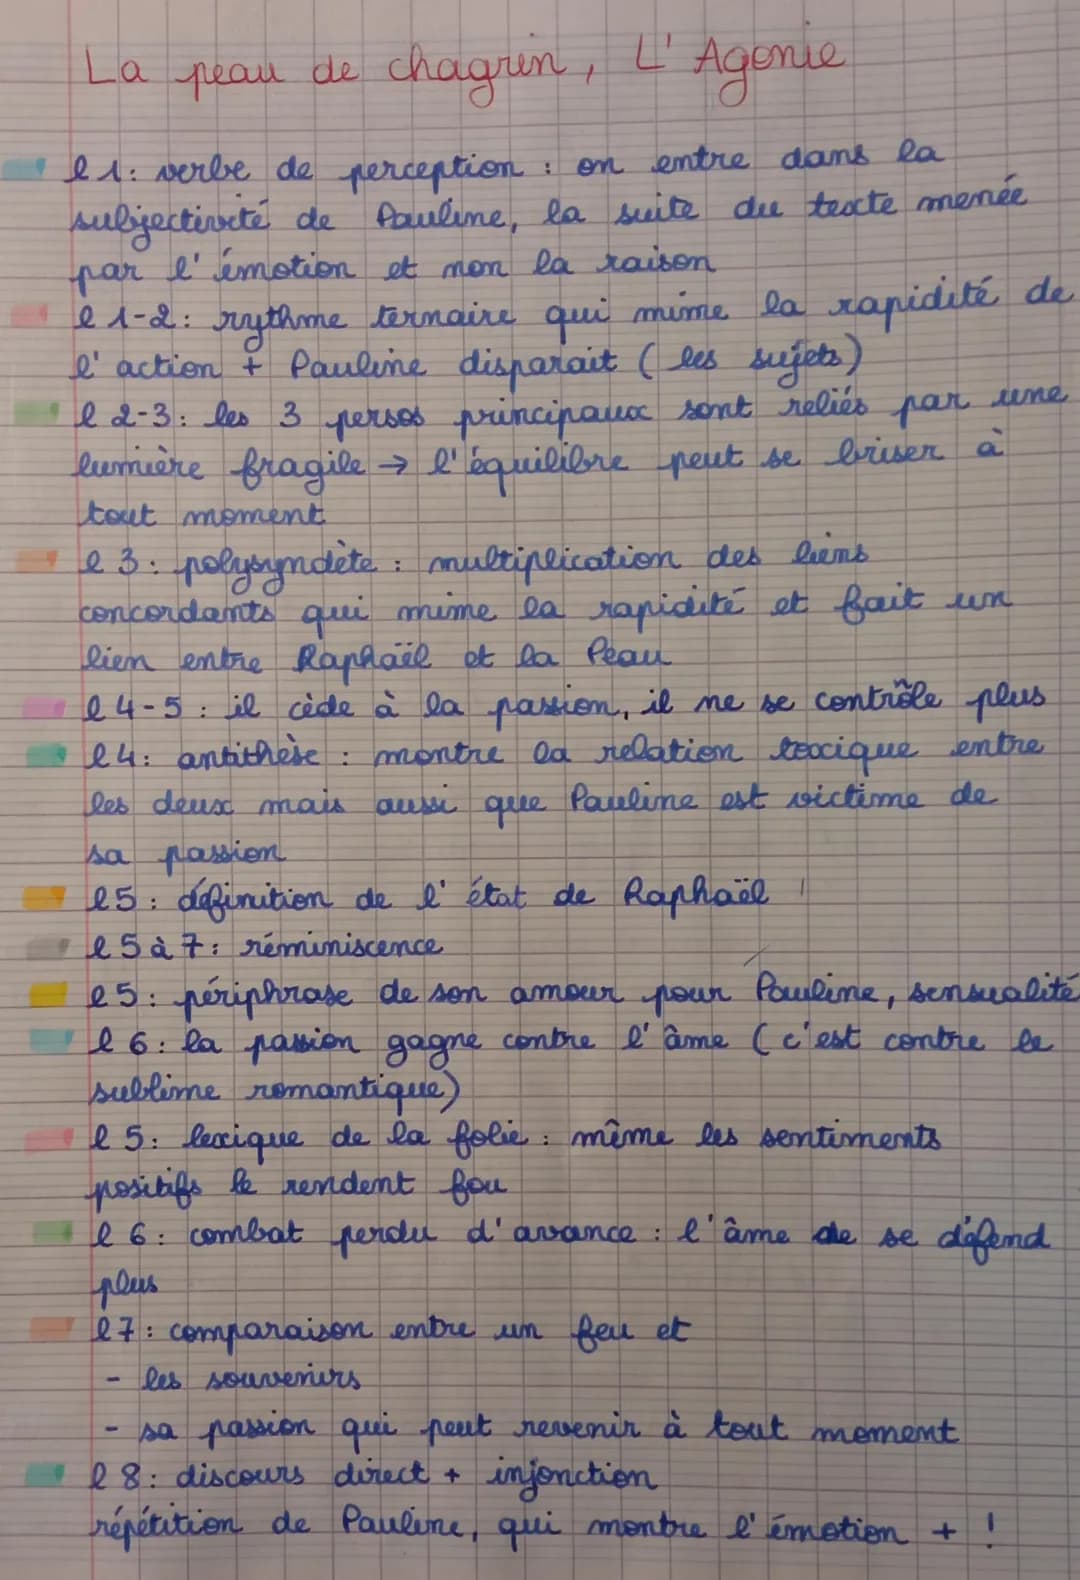 La peau de chagrin, L'Agonie
l 1: verbe de perception : on entre dans la
subjectiveté de Pauline, la suite du texte menée
par l'émotion et non la raison
l 1-2: rythme ternaire qui mime la rapidité de
l'action + Pauline disparait ( les sujets)
l 2-3: les 3 persos principaux sont reliés par une
lumière fragile → l'équilibre peut se briser à
tout moment
l 3: polysyndète : multiplication des liens
concordants qui mime la rapidité et fait un
lien entre Raphaël et la Peau
l 4-5 : il cède à la passion, il ne se contrôle plus
l4: antithèse : montre la relation toxique entre
les deux mais aussi que Pauline est victime de
sa passion
l5 : définition de l'état de Raphaël !
l 5 à 7: réminiscence
l5: périphrase de son amour pour Pauline, sensualité
l 6: la passion gagne contre l'âme (c'est contre le
sublime romantique)
l 5: lexique de la folie : même les sentiments
positifs le rendent fou
l 6: combat perdu d'avance : l'âme de se défend
plus
l7: comparaison entre un feu et
- les souvenirs
- sa passion qui peut revenir à tout moment
l 8: discours direct + injonction
répétition de Pauline, qui montre l'émotion + !